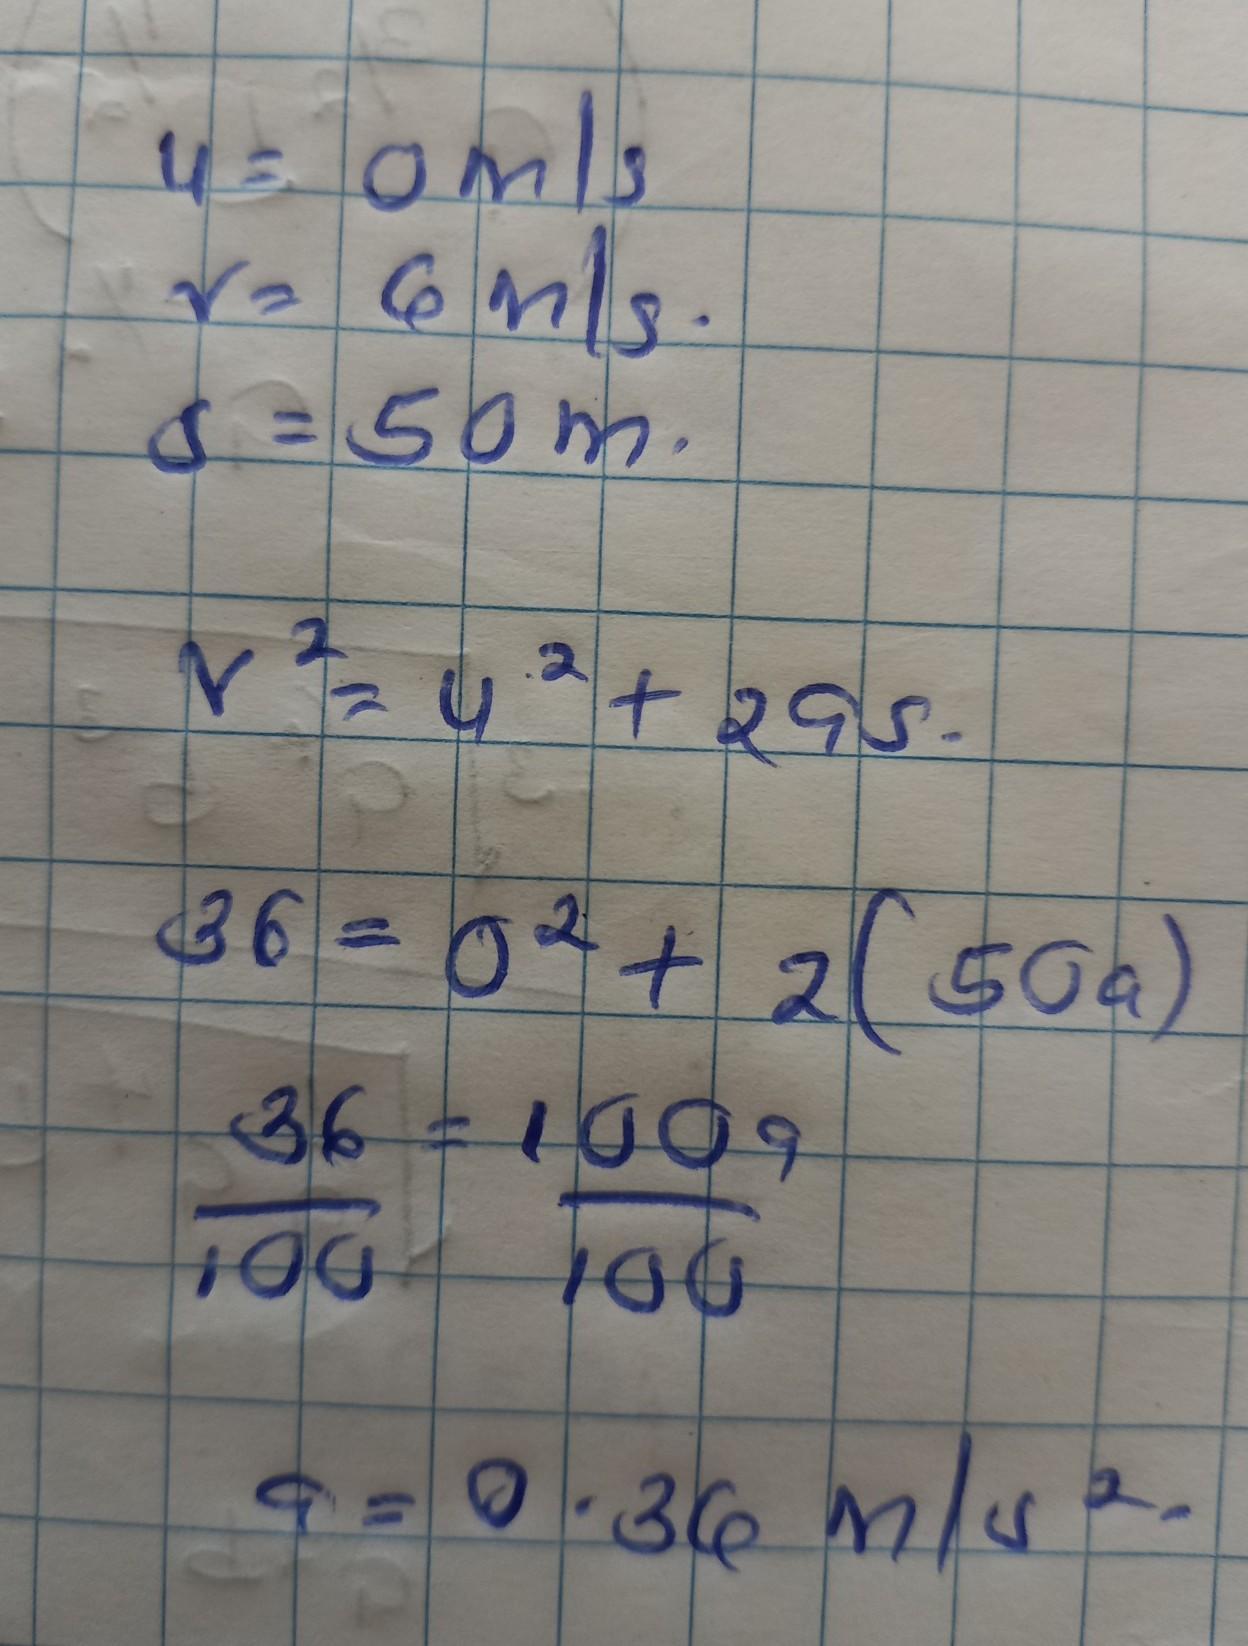 u = 0 m/s
v = 6 m/s.
s = 50 m.
v² = u² + 2as.
36 = 0² + 2(50a)
36 = 100a
100 100
a = 0.36 m/s².